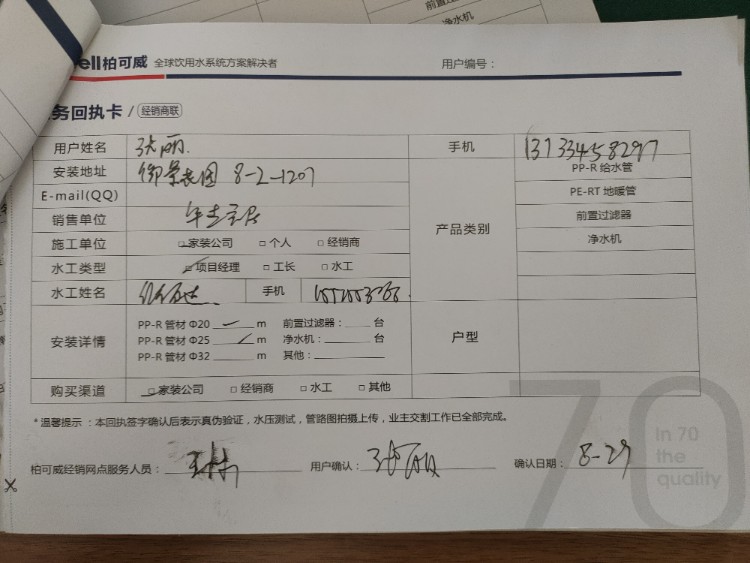 前置过滤器
净水机
ell柏可威 全球饮用水系统方案解决者 用户编号：
务回执卡 / 经销商联
用户姓名 张丽 手机 13133458297
安装地址 御景表园 8-2-1207 PP-R 给水管
E-mail(QQ) PE-RT 地暖管
销售单位 产品类别 前置过滤器
施工单位 □家装公司 □个人 □经销商 净水机
水工类型 □项目经理 □工长 □水工
水工姓名 手机
安装详情 PP-R 管材 Φ20 m 前置过滤器： 台 户型
PP-R 管材 Φ25 m 净水机： 台
PP-R 管材 Φ32 m 其他：
购买渠道 □家装公司 □经销商 □水工 □其他
*温馨提示：本回执签字确认后表示真伪验证，水压测试，管路图拍摄上传，业主交割工作已全部完成。
柏可威经销网点服务人员： 用户确认：张丽 确认日期：8-29
70
In 70
the
quality